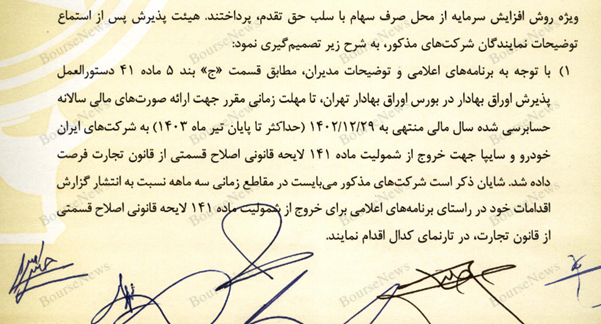 ویژه روش افزایش سرمایه از محل صرف سهام با سلب حق تقدم، پرداختند. هیئت پذیرش پس از استماع
توضیحات نمایندگان شرکت‌های مذکور، به شرح زیر تصمیم‌گیری نمود:
۱) با توجه به برنامه‌های اعلامی و توضیحات مدیران، مطابق قسمت «ج» بند ۵ ماده ۴۱ دستورالعمل
پذیرش اوراق بهادار در بورس اوراق بهادار تهران، تا مهلت زمانی مقرر جهت ارائه صورت‌های مالی سالانه
حسابرسی شده سال مالی منتهی به ۱۴۰۲/۱۲/۲۹ (حداکثر تا پایان تیر ماه ۱۴۰۳) به شرکت‌های ایران
خودرو و سایپا جهت خروج از شمولیت ماده ۱۴۱ لایحه قانونی اصلاح قسمتی از قانون تجارت فرصت
داده شد. شایان ذکر است شرکت‌های مذکور می‌بایست در مقاطع زمانی سه ماهه نسبت به انتشار گزارش
اقدامات خود در راستای برنامه‌های اعلامی برای خروج از شمولیت ماده ۱۴۱ لایحه قانونی اصلاح قسمتی
از قانون تجارت، در تارنمای کدال اقدام نمایند.
BourseNews